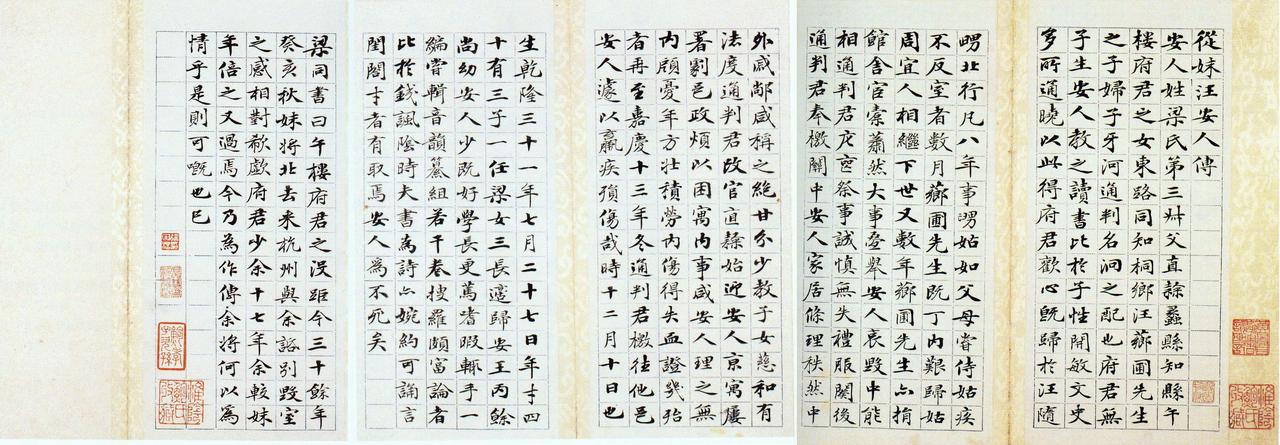 從妹汪安人傳
安人姓梁氏第三叔父直隸蠡縣知縣午
樓府君之女東路同知桐鄉汪薌圃先生
之子婦子牙河通判名泂之配也府君無
子生安人教之讀書比於子性開敏文史
多所通曉以此得府君歡心既歸於汪隨
甥北行凡八年事甥姑如父母嘗侍姑疾
不反室者數月薌圃先生既丁內艱歸姑
周宜人相繼下世又數年薌圃先生亦捐
館舍宦橐蕭然大事憂舉安人哀毀中能
相通判君庀窀穸事誠慎無失禮服闋後
通判君奉檄關中安人家居條理秩然中
外戚鄰咸稱之絕甘分少教子女慈和有
法度通判君改官直隸始迎安人京寓屢
署劇邑政煩以困寓內事咸安人理之無
內顧憂年方壯積勞內傷得失血證幾殆
者再至嘉慶十三年冬通判君檄往他邑
安人遽以羸疾殞傷哉時十二月十日也
生乾隆三十一年七月二十七日年才四
十有三子一任梁女三長適歸安王丙餘
尚幼安人少既好學長更篤嗜暇輒手一
編嘗輯音韻纂組若干卷搜羅頗富論者
比於錢諷陰時夫書為詩亦婉約可誦言
閨閤才者有取焉安人為不死矣
梁同書曰午樓府君之沒距今三十餘年
癸亥秋妹將北去來杭州與余話別毀室
之感相對欷歔府君少余十七年余較妹
年倍之又過焉今乃為作傳余將何以為
情乎是則可慨也已